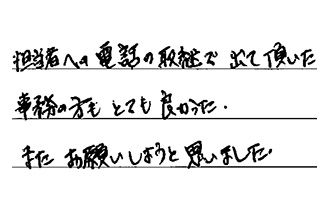 担当者への電話の取継で出て頂いた
事務の方もとても良かった.
またお願いしようと思いました.